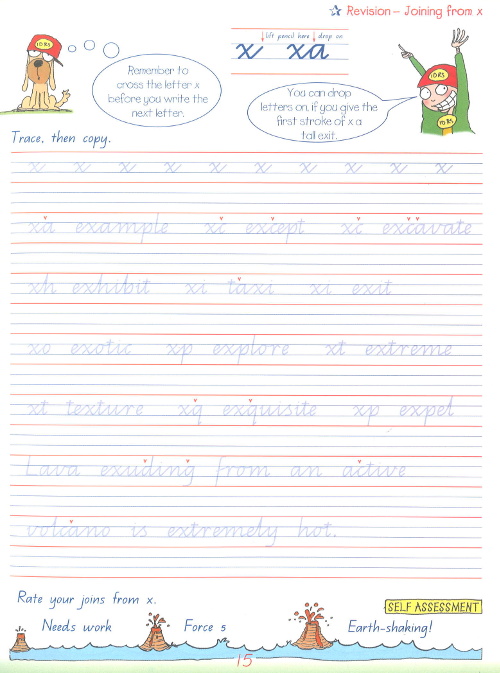 ☆ Revision – Joining from x
lift pencil here drop on
x xa
IORS
Remember to
cross the letter x
before you write the
next letter.
You can drop
letters on, if you give the
first stroke of x a
tall exit.
IORS
IORS
Trace, then copy.
x x x x x x x x x x
xa example xc except xc excavate
xh exhibit xi taxi xi exit
xo exotic xp explore xt extreme
xt texture xq exquisite xp expel
Lava exuding from an active
volcano is extremely hot.
Rate your joins from x.
SELF ASSESSMENT
Needs work Force 5 Earth-shaking!
15